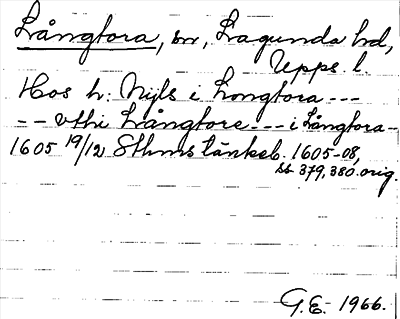 Långtora, sn, Lagunda hd,
Upps. l.
Hos h. Nijls i Longtora ---
-- vthi Långtore --- i Långtora -
1605 19/12 Sthms tänkeb. 1605-08,
ss 379, 380. orig.
G.E. 1966.